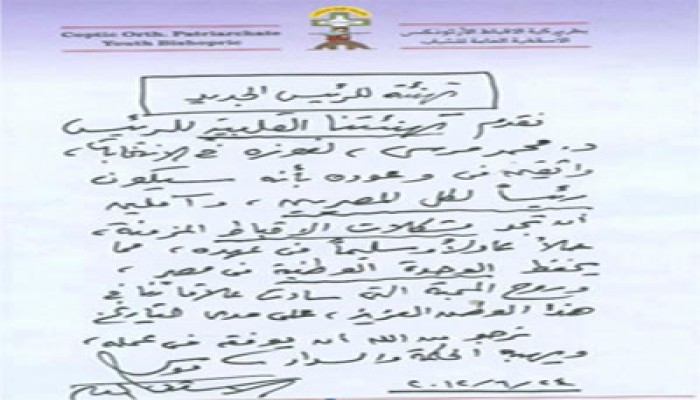 Coptic Orth. Patriarchate
Youth Bishopric
بطريركية الاقباط الأرثوذكس
الاسقفية العامة للشباب
تهنئة للرئيس الجديد
نقدم تهنئتنا القلبية للرئيس
د. محمد مرسى، لفوزه فى الانتخابات،
واثقين فى وعوده بأنه سيكون
رئيساً لكل المصريين، وآملين
أن تجد مشكلات الأقباط المزمنة،
حلاً عادلاً وسليماً فى عهده، مما
يحفظ الوحدة الوطنية فى مصر،
وروح المحبة التى سادت علاقاتنا فى
هذا الوطن العزيز، على مدى التاريخ
نرجو من الله أن يوفقه فى عمله،
ويهبه الحكمة والسداد
موسى
الأسقف العام
٢٠١٢/٦/٢٤